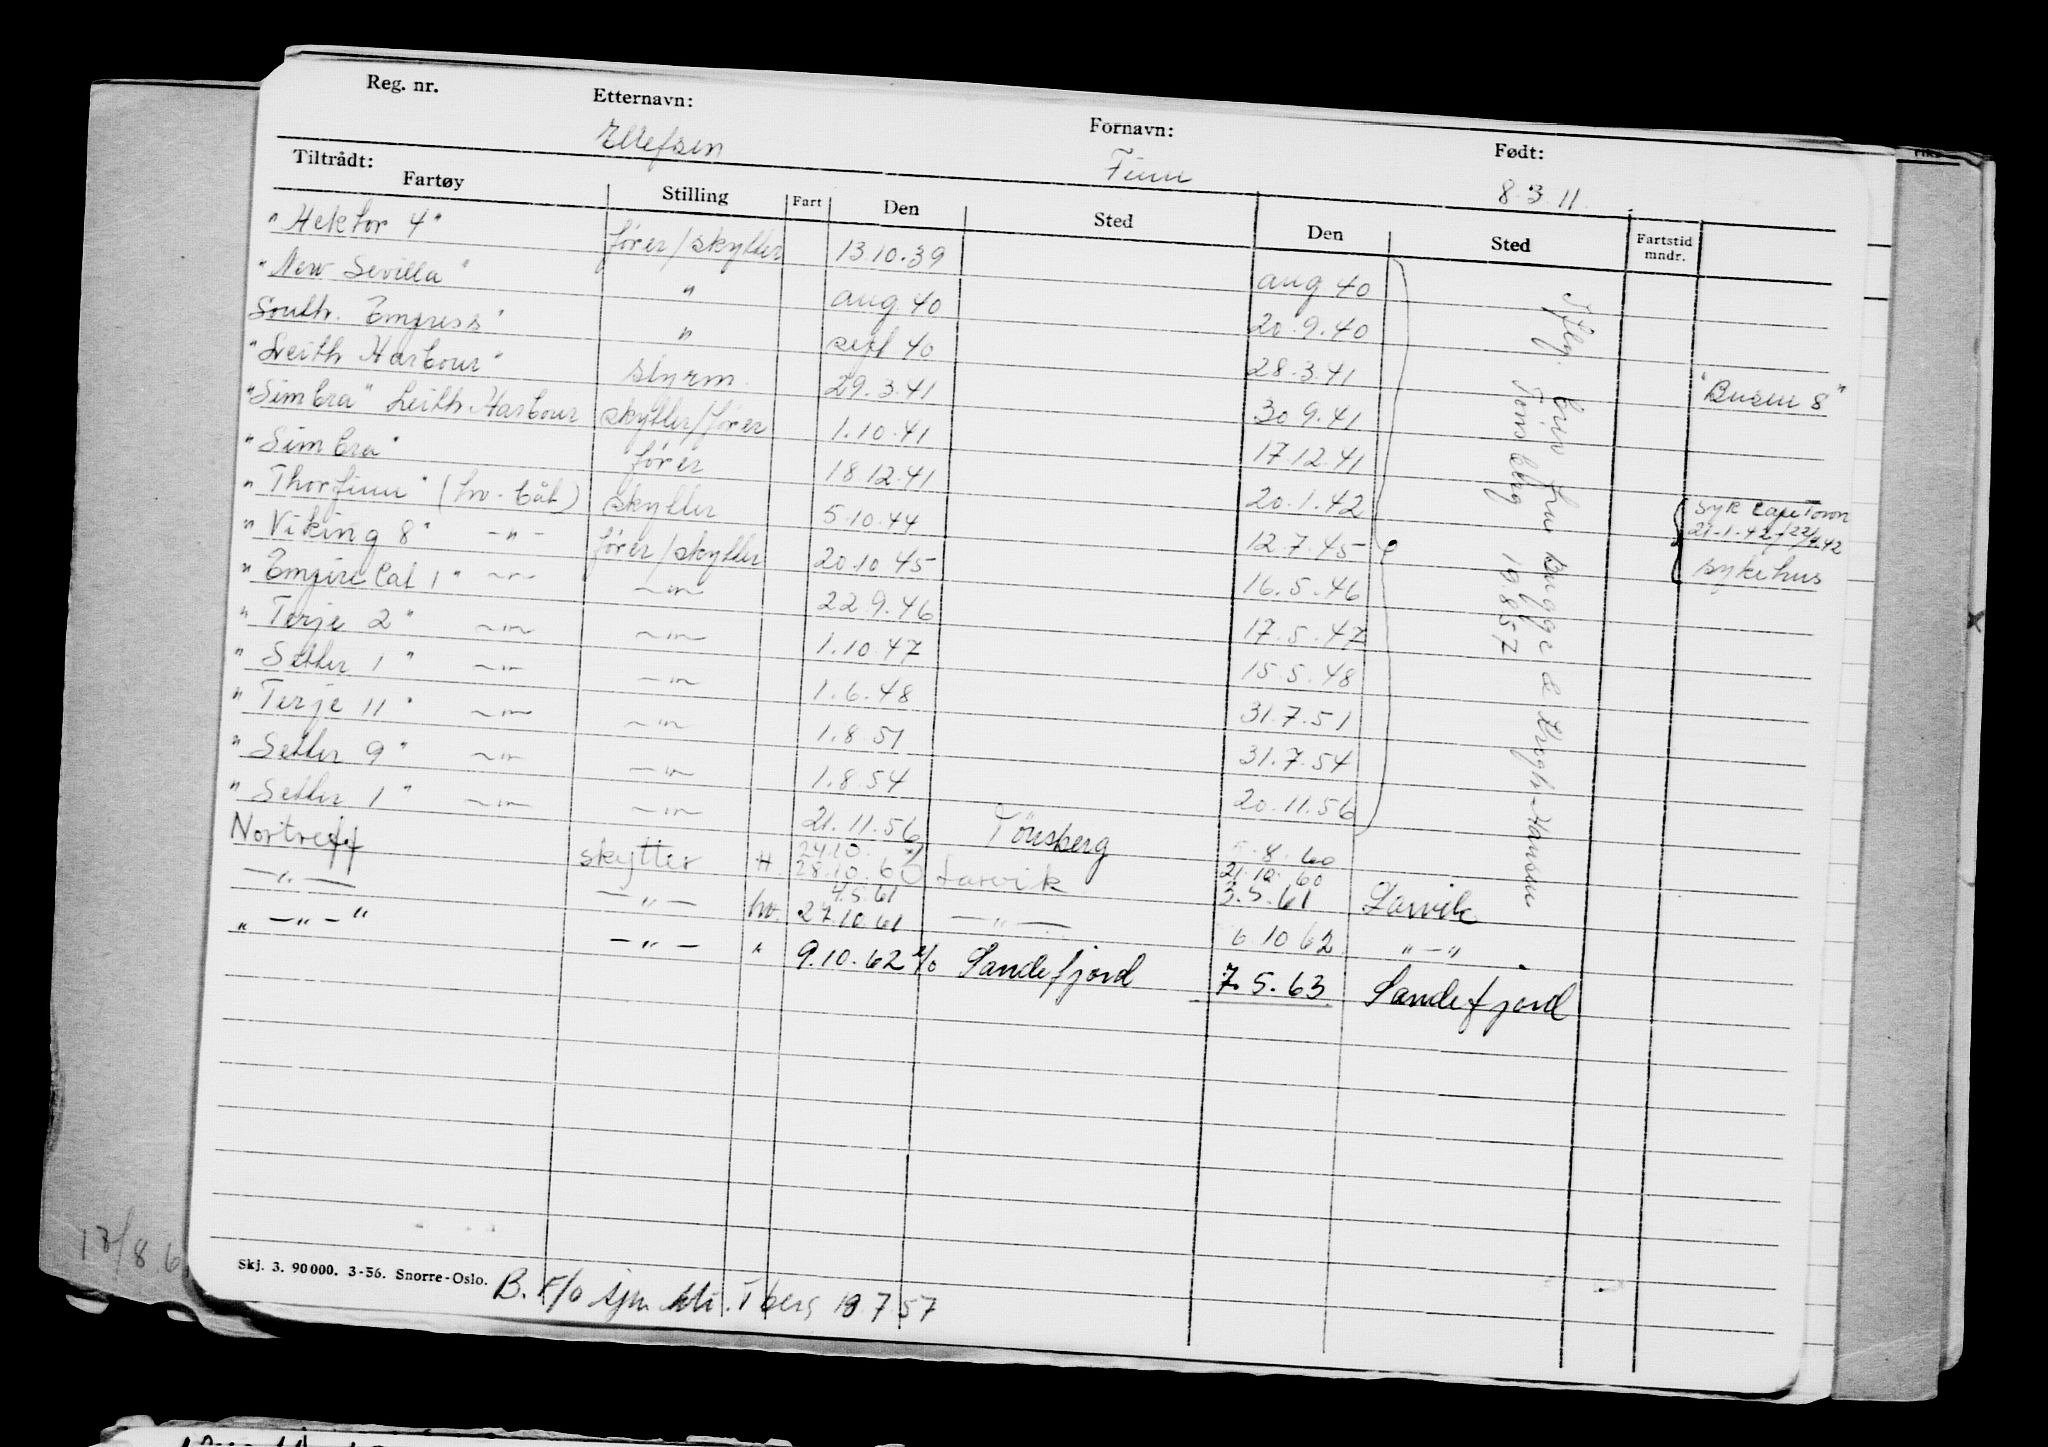 Reg. nr. Etternavn: Fornavn: Født:
Ellefsen Finn 8.3.11.
Tiltrådt:
Fartøy Stilling Fart Den Sted Den Sted Fartstid mndr.
"Hektor 4" fører/skytter 13.10.39 aug 40
"New Sevilla" " aug 40 20.9.40
South. Empress" " sept 40 28.3.41
"Leith Harbour" styrm. 29.3.41 30.9.41 "Busen 8"
"Simbra" Leith Harbour skytter/fører 1.10.41 17.12.41
"Simbra" fører 18.12.41 20.1.42
"Thorfinn" (hv-båt) skytter 5.10.44 12.7.45
"Viking 8" -"- fører/skytter 20.10.45 16.5.46
"Empire Cat 1" -"- -"- 22.9.46 17.5.47
"Terje 2" -"- -"- 1.10.47 15.5.48
"Setter 1" -"- -"- 1.6.48 31.7.51
"Terje 11" -"- -"- 1.8.51 31.7.54
"Setter 9" -"- -"- 1.8.54 20.11.56
"Setter 1" -"- -"- 21.11.56 Tönsberg 8.60
Nortreff skytter H 24.10. 28.10.60 Larvik 21.10.60
-"- -"- hv. 4.5.61 27.10.61 -"- 3.5.61 Larvik
6.10.62 "-"
"-"-" -"- " 9.10.62 Sandefjord 7.5.63 Sandefjord
syk CapeTown
21.1.42/22/4.42
sykehus
Iflg. brev fra Bugge & Krogh-Hansen
Tønsberg 19857
Skj. 3. 90000. 3-56. Snorre-Oslo.
B. F/o sjm Tberg 18 7 57